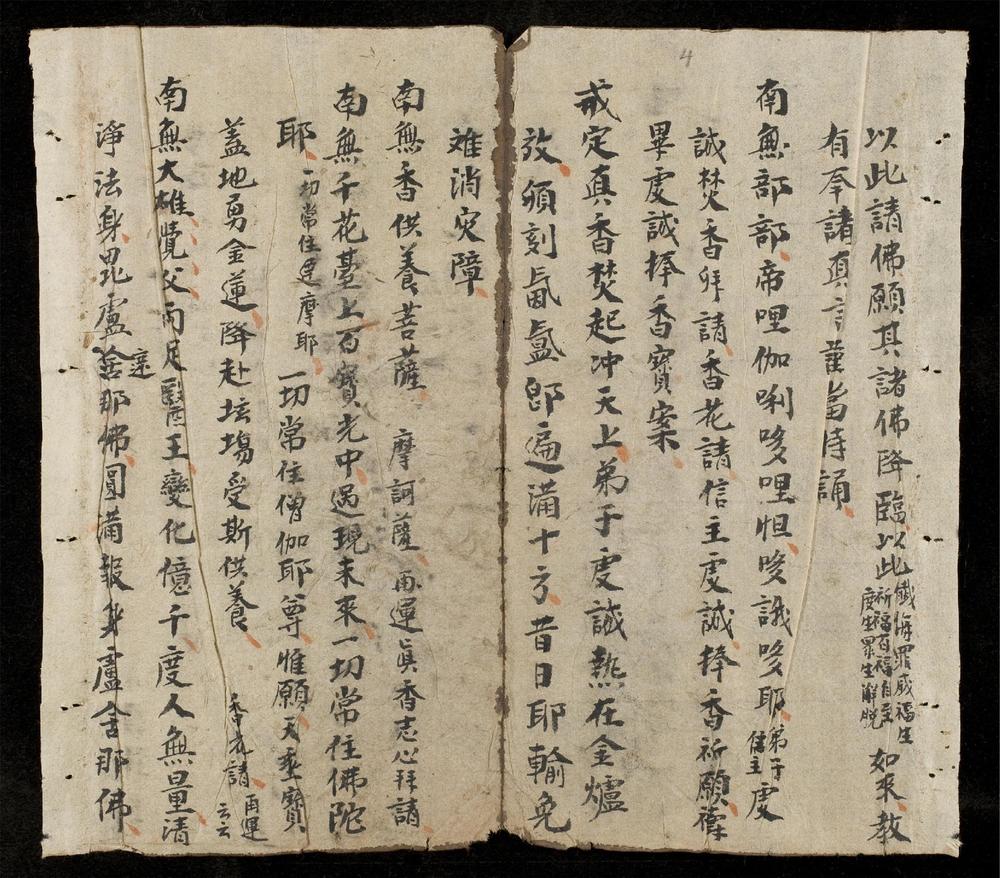 4
以此請佛願其諸佛降臨以此懺悔罪咸福生祈福百福自至度生罪生解脫如來教
有奉請真言謹當持誦
南無部部帝哩伽唎哆哩怛哆誐哆耶弟子信主虔
誠焚香拜請香花請信主虔誠捧香祈願禱
畢虔誠捧香寶案
戒定真香焚起冲天上弟子虔誠熱在金爐
放頒刻氤氳即遍滿十方昔日耶輸免
难消灾障
南無香供養菩薩 摩訶薩 再運眞香志心拜請
南無千花臺上百寶光中過現未來一切常住佛陀
耶一切常住達摩耶 一切常住僧伽耶尊惟願天垂寶
蓋地勇金蓮降赴坛塲受斯供養 香花請再運云云
南無大雄覺父兩足毉王變化億千度人無量清
淨法身毘盧遮那佛圓滿報身盧舍那佛